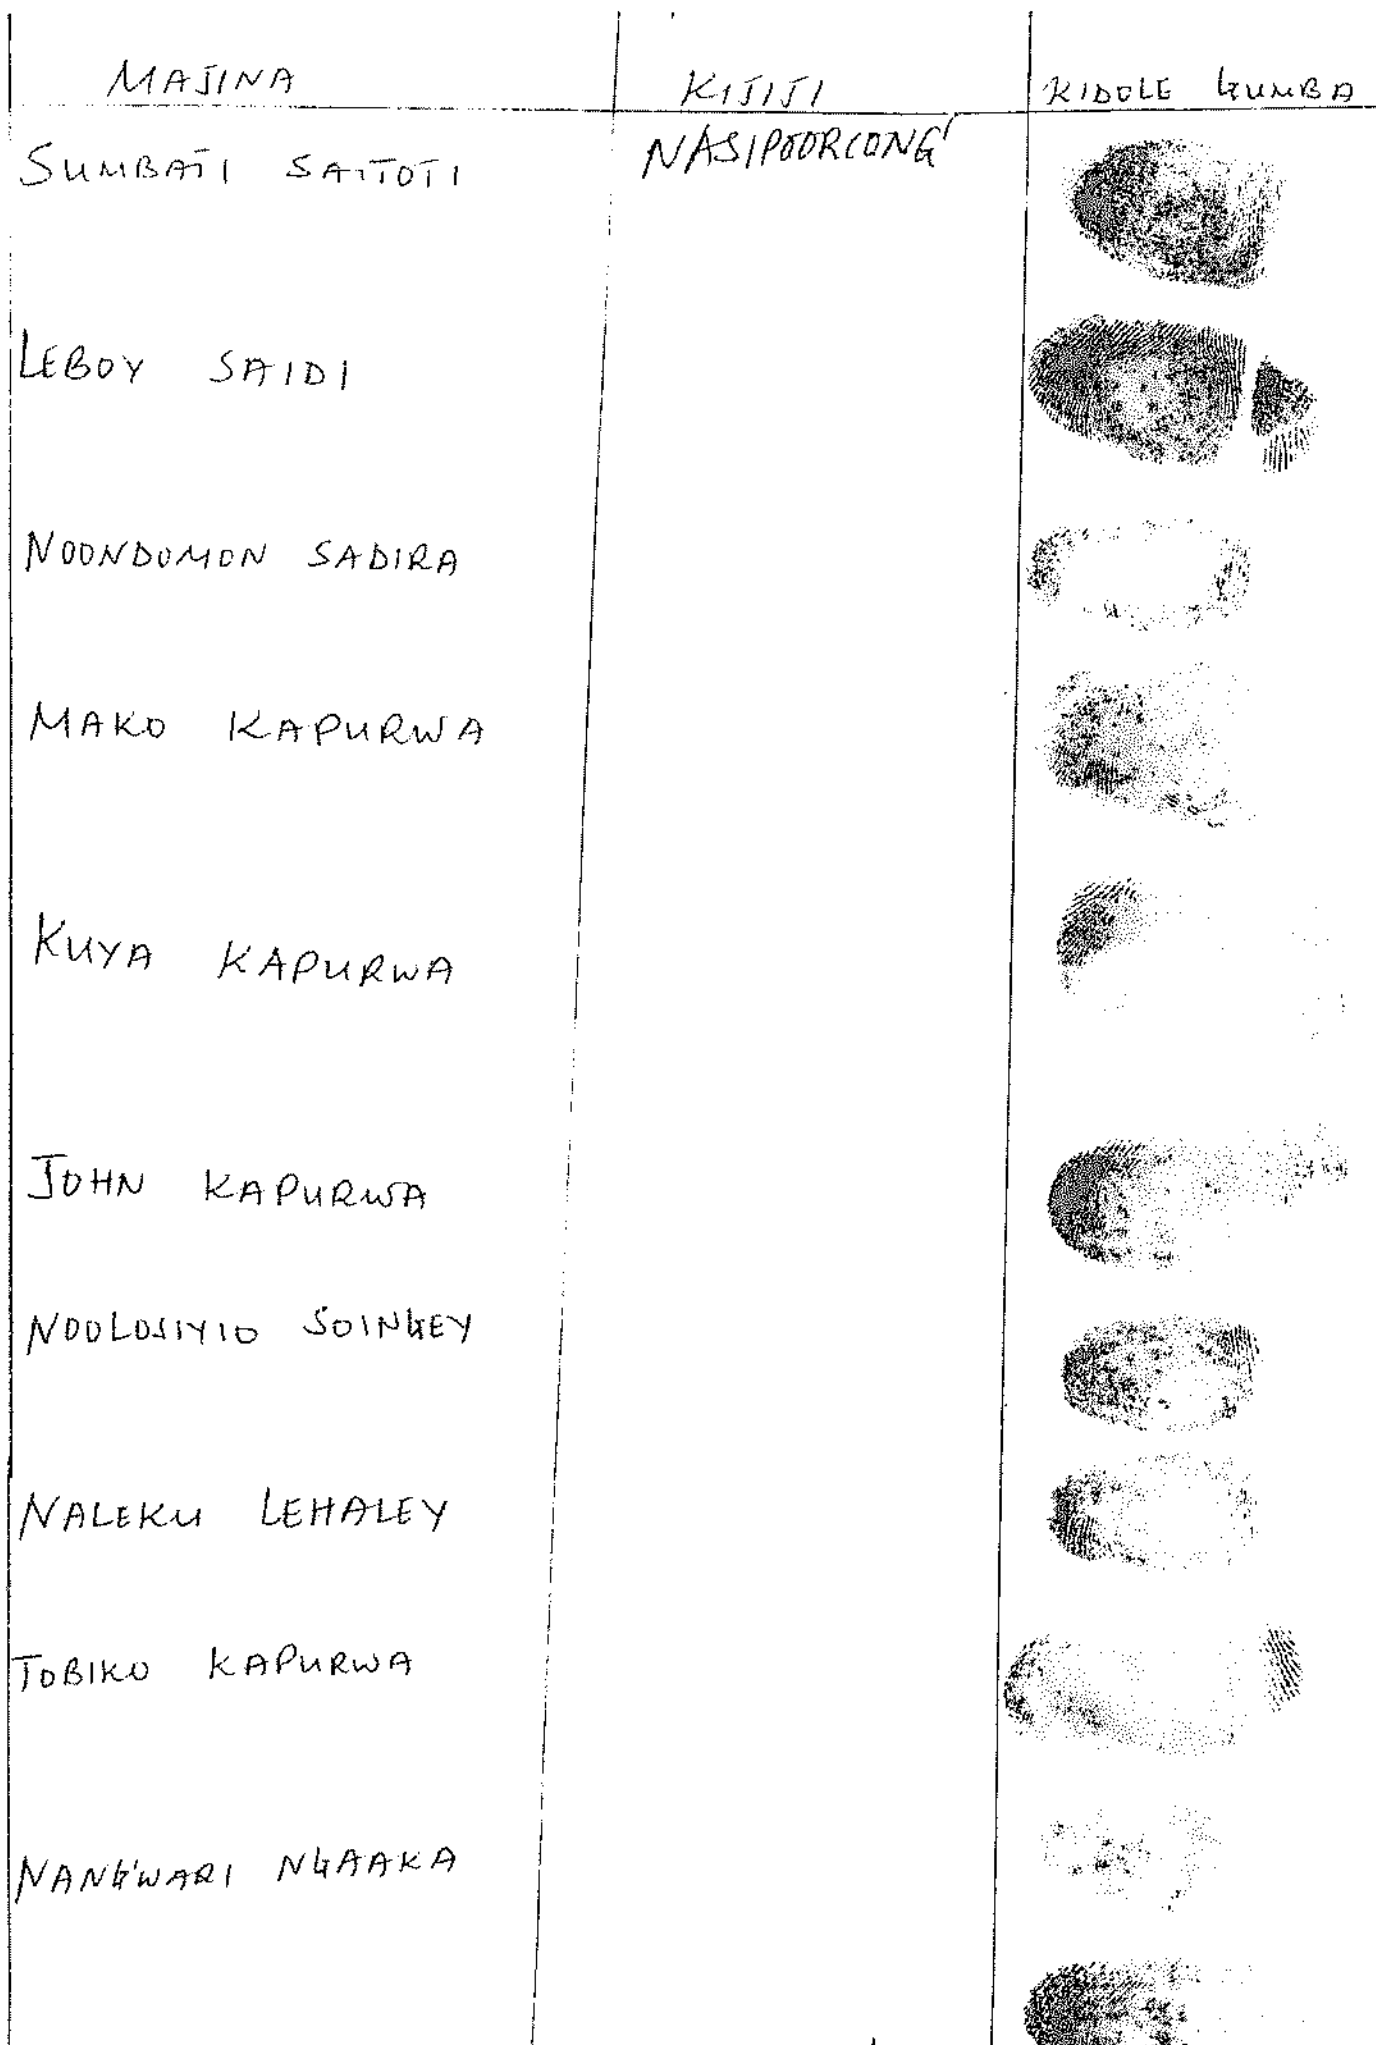 MAJINA KIJIJI KIDOLE GUMBA
SUMBATI SAITOTI NASIPOORIONG'
LEBOY SAIDI
NOONDOMON SADIRA
MAKO KAPURWA
KUYA KAPURWA
JOHN KAPURWA
NOOLOSIYIO SOINGEY
NALEKU LEHALEY
TOBIKO KAPURWA
NANG'WARI NGAAKA